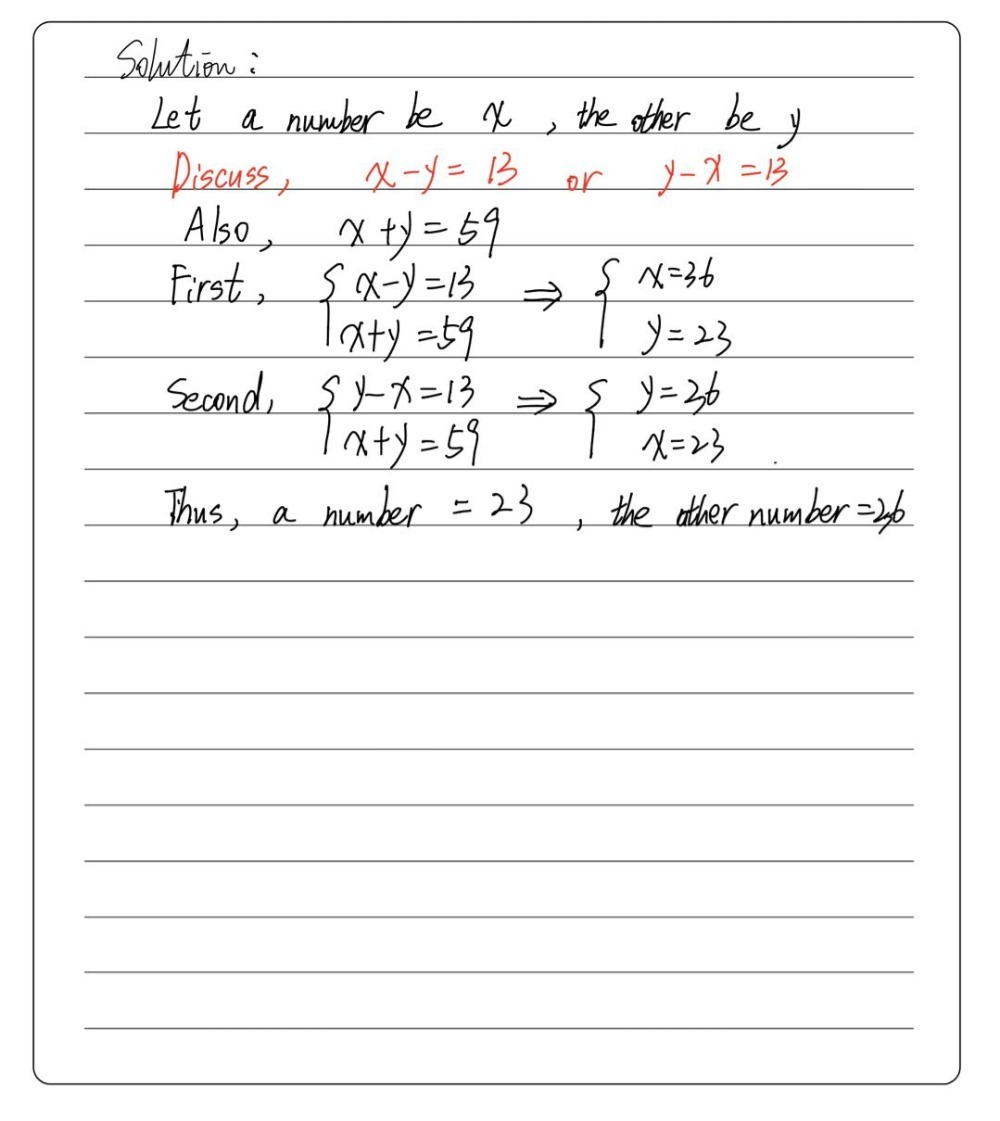 Solution:
Let a number be x, the other be y
Discuss, x-y=13 or y-x=13
Also, x+y=59
First, { x-y=13 ⇒ { x=36
x+y=59 y=23
Second, { y-x=13 ⇒ { y=36
x+y=59 x=23
Thus, a number = 23, the other number=36